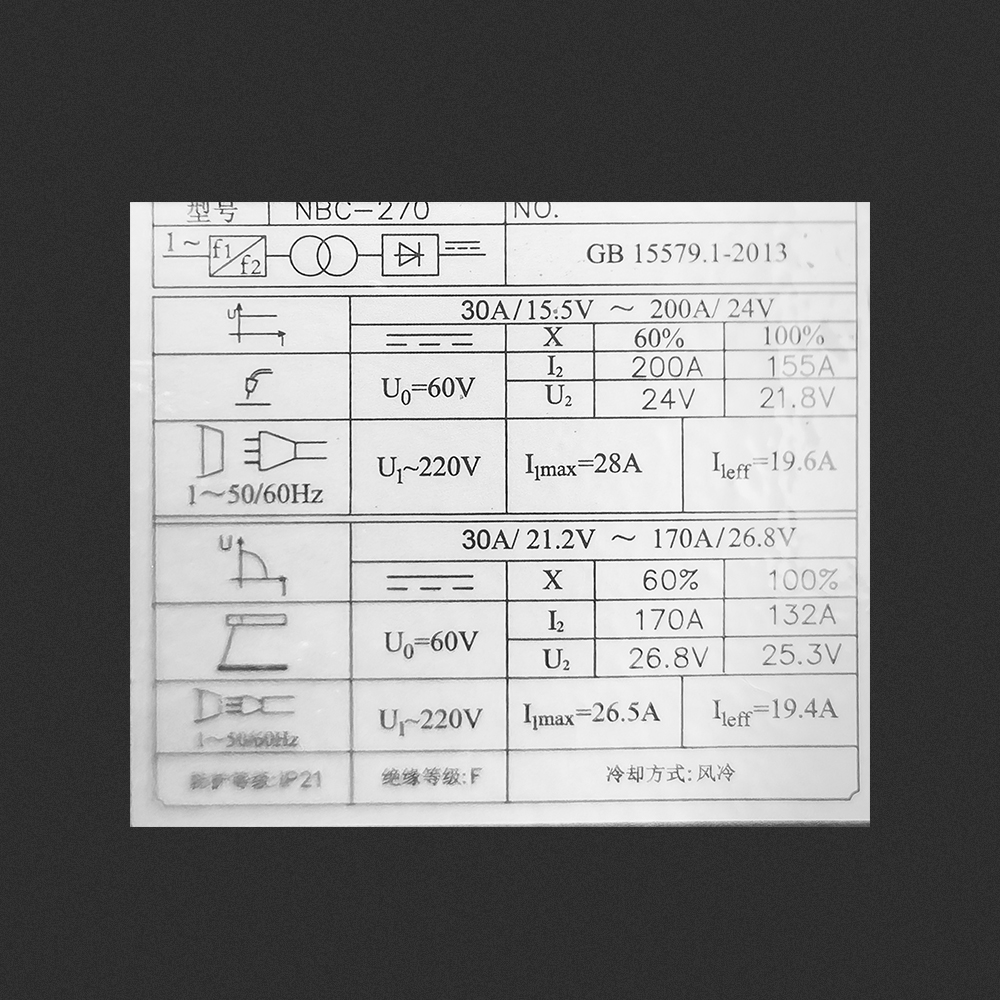 型号 NBC-270 NO.
1~ f1 f2 GB 15579.1-2013
U 30A/15.5V ~ 200A/24V
X 60% 100%
U₀=60V I₂ 200A 155A
U₂ 24V 21.8V
1~50/60Hz U₁~220V I₁max=28A I₁eff=19.6A
U 30A/21.2V ~ 170A/26.8V
X 60% 100%
U₀=60V I₂ 170A 132A
U₂ 26.8V 25.3V
1~50/60Hz U₁~220V I₁max=26.5A I₁eff=19.4A
防护等级:IP21 绝缘等级:F 冷却方式:风冷